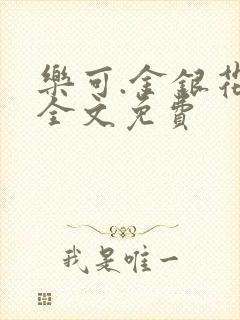 樂可.金銀花
全文免費
我是唯一